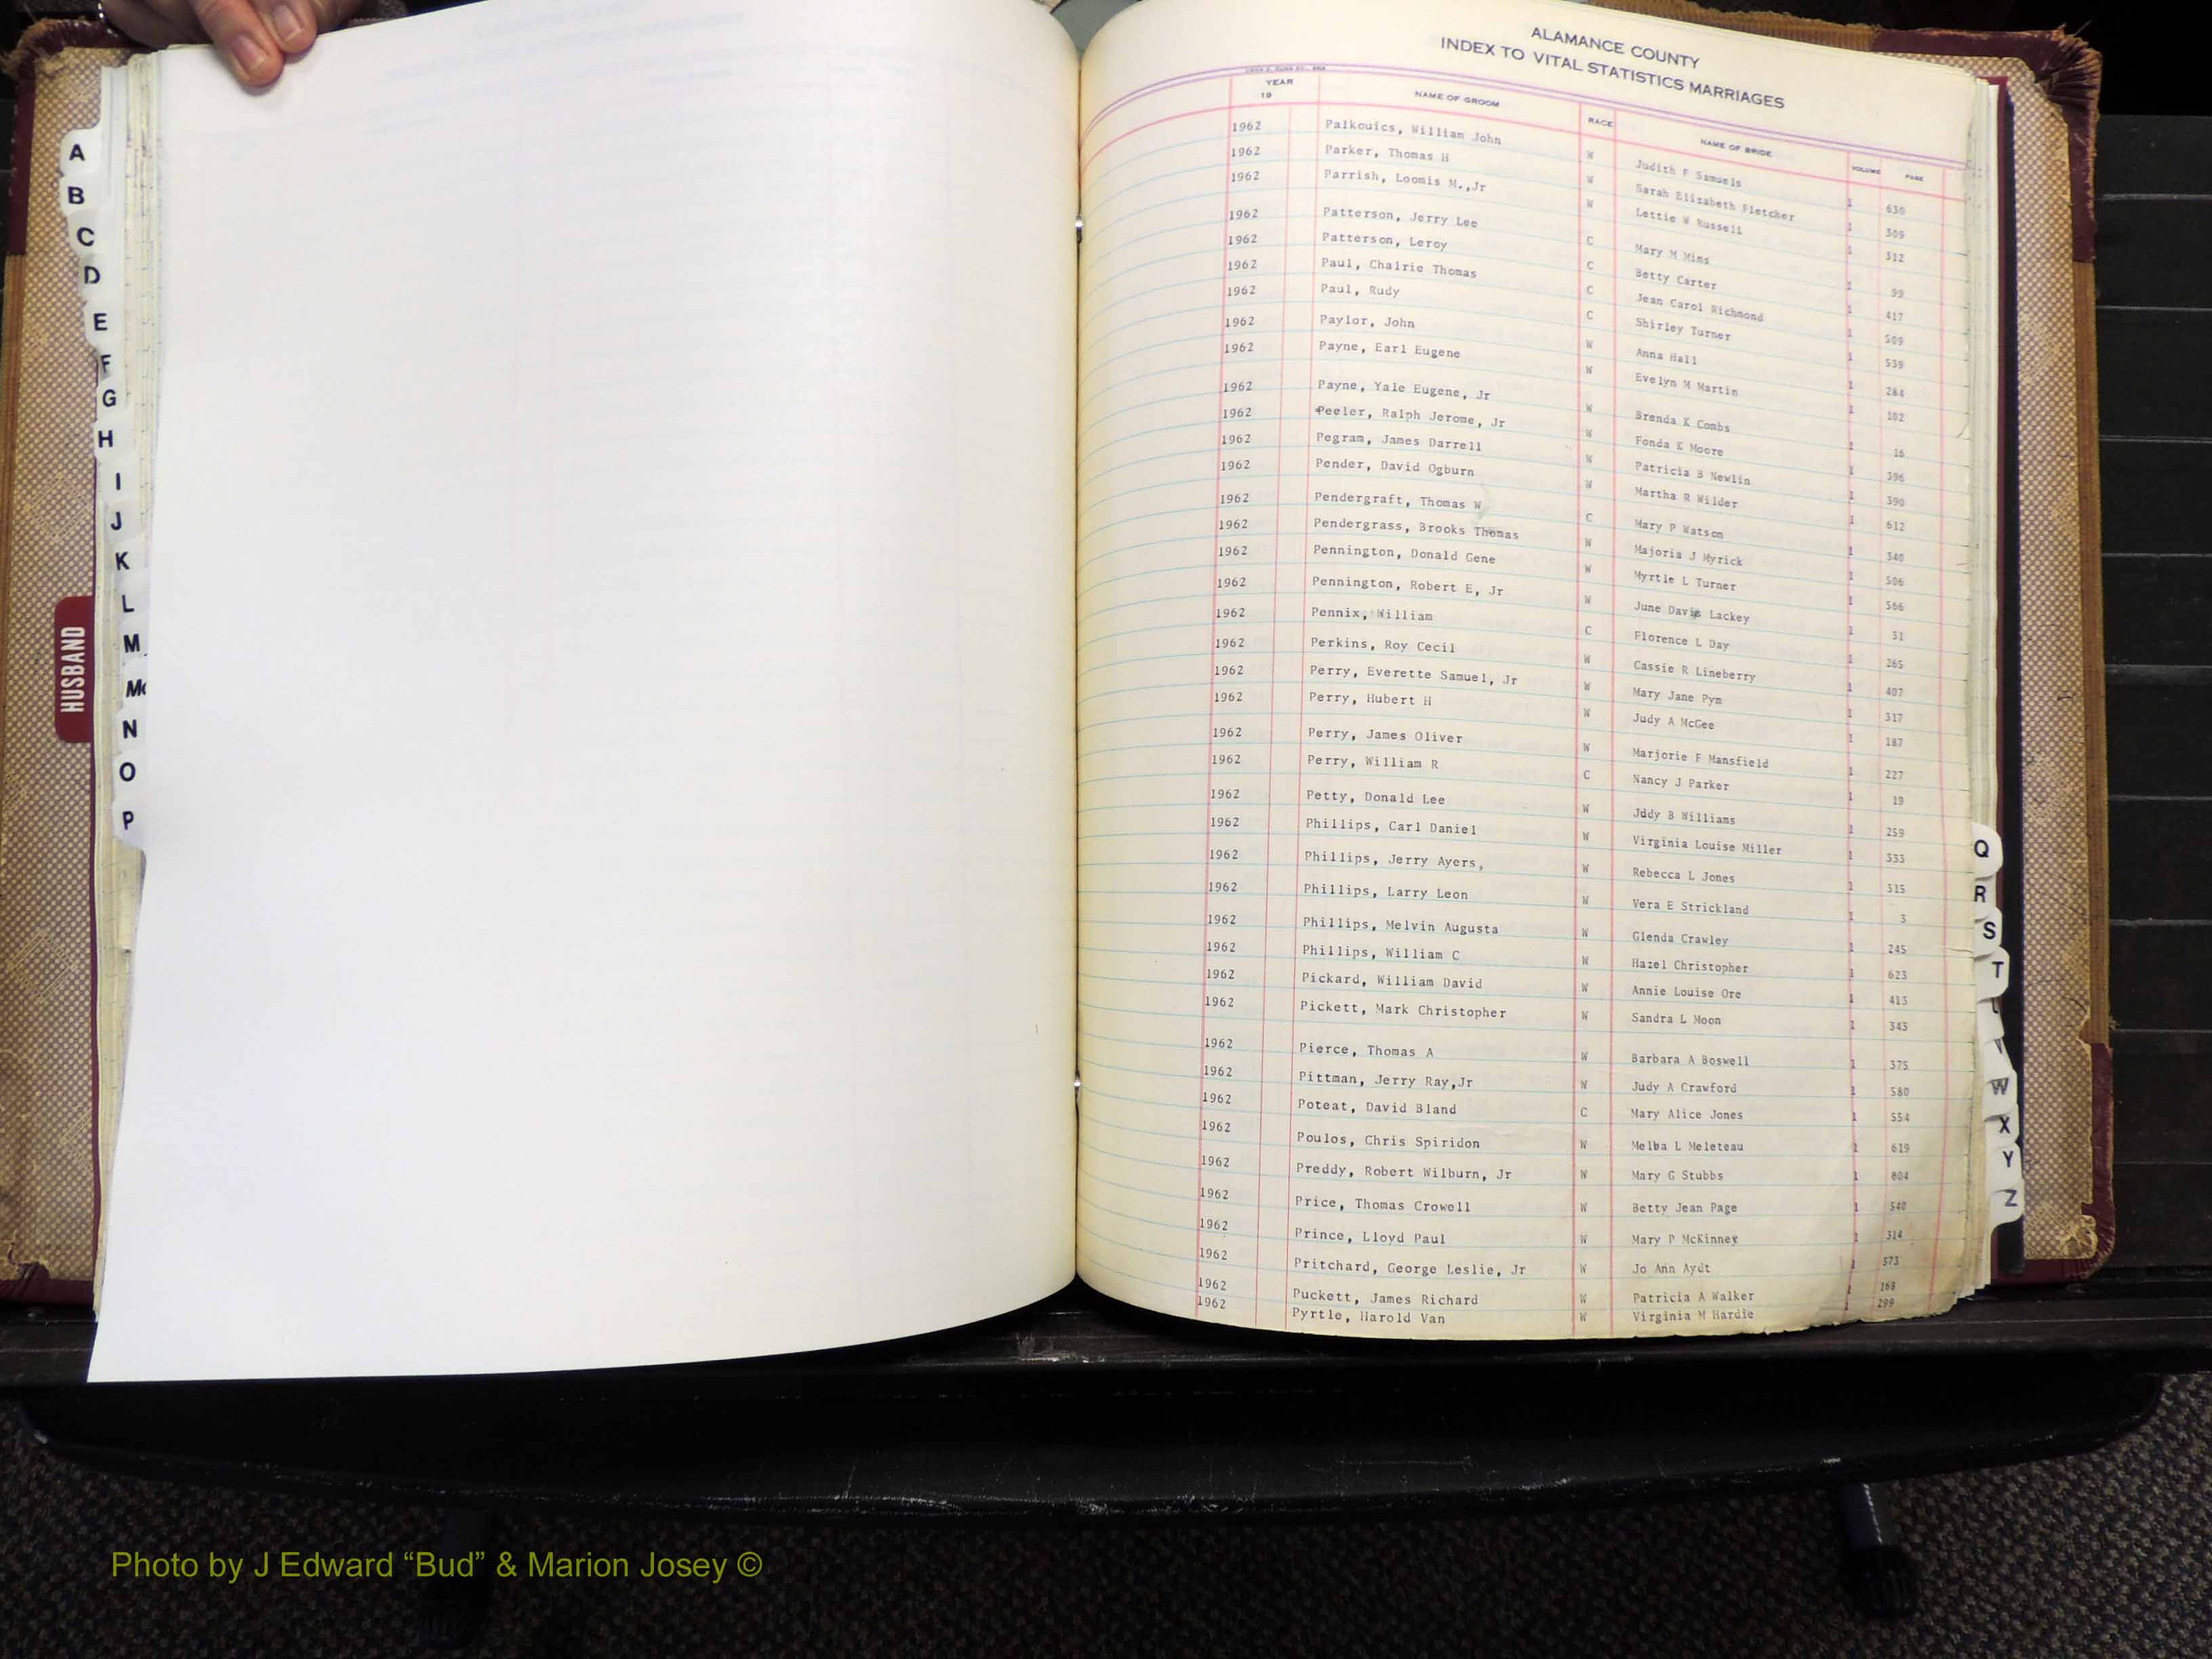 ALAMANCE COUNTY
INDEX TO VITAL STATISTICS MARRIAGES
YEAR 19 NAME OF GROOM RACE NAME OF BRIDE VOLUME PAGE
1962 Palkouics, William John W Judith F Samuels 1 630
1962 Parker, Thomas H W Sarah Elizabeth Fletcher 1 509
1962 Parrish, Loomis M.,Jr W Lettie W Russell 1 312
1962 Patterson, Jerry Lee C Mary M Mims 1 99
1962 Patterson, Leroy C Betty Carter 1 417
1962 Paul, Chairie Thomas C Jean Carol Richmond 1 509
1962 Paul, Rudy C Shirley Turner 1 539
1962 Paylor, John W Anna Hall 1 284
1962 Payne, Earl Eugene W Evelyn M Martin 1 102
1962 Payne, Yale Eugene, Jr W Brenda K Combs 1 16
1962 Peeler, Ralph Jerome, Jr W Fonda K Moore 1 396
1962 Pegram, James Darrell W Patricia B Newlin 1 390
1962 Pender, David Ogburn W Martha R Wilder 1 612
1962 Pendergraft, Thomas W C Mary P Watson 1 340
1962 Pendergrass, Brooks Thomas W Majoria J Myrick 1 506
1962 Pennington, Donald Gene W Myrtle L Turner 1 566
1962 Pennington, Robert E, Jr W June Davis Lackey 1 31
1962 Pennix, William C Florence L Day 1 265
1962 Perkins, Roy Cecil W Cassie R Lineberry 1 407
1962 Perry, Everette Samuel, Jr W Mary Jane Pym 1 317
1962 Perry, Hubert H W Judy A McGee 1 187
1962 Perry, James Oliver W Marjorie F Mansfield 1 227
1962 Perry, William R C Nancy J Parker 1 19
1962 Petty, Donald Lee W Jddy B Williams 1 259
1962 Phillips, Carl Daniel W Virginia Louise Miller 1 333
1962 Phillips, Jerry Ayers, W Rebecca L Jones 1 315
1962 Phillips, Larry Leon W Vera E Strickland 1
1962 Phillips, Melvin Augusta W Glenda Crawley 1 245
1962 Phillips, William C W Hazel Christopher 1 623
1962 Pickard, William David W Annie Louise Ore 1 413
1962 Pickett, Mark Christopher W Sandra L Moon 1 343
1962 Pierce, Thomas A W Barbara A Boswell 1 375
1962 Pittman, Jerry Ray,Jr W Judy A Crawford 1 580
1962 Poteat, David Bland C Mary Alice Jones 1 554
1962 Poulos, Chris Spiridon W Melba L Meleteau 1 619
1962 Preddy, Robert Wilburn, Jr W Mary G Stubbs 1 604
1962 Price, Thomas Crowell W Betty Jean Page 1 540
1962 Prince, Lloyd Paul W Mary P McKinney 1 314
1962 Pritchard, George Leslie, Jr W Jo Ann Aydt 1 573
1962 Puckett, James Richard W Patricia A Walker 1 168
1962 Pyrtle, Harold Van W Virginia M Hardie 1 299
A
B
C
D
E
F
G
H
I
J
K
L
M
Mc
N
O
P
HUSBAND
Q
R
S
T
W
X
Y
Z
Photo by J Edward “Bud” & Marion Josey ©